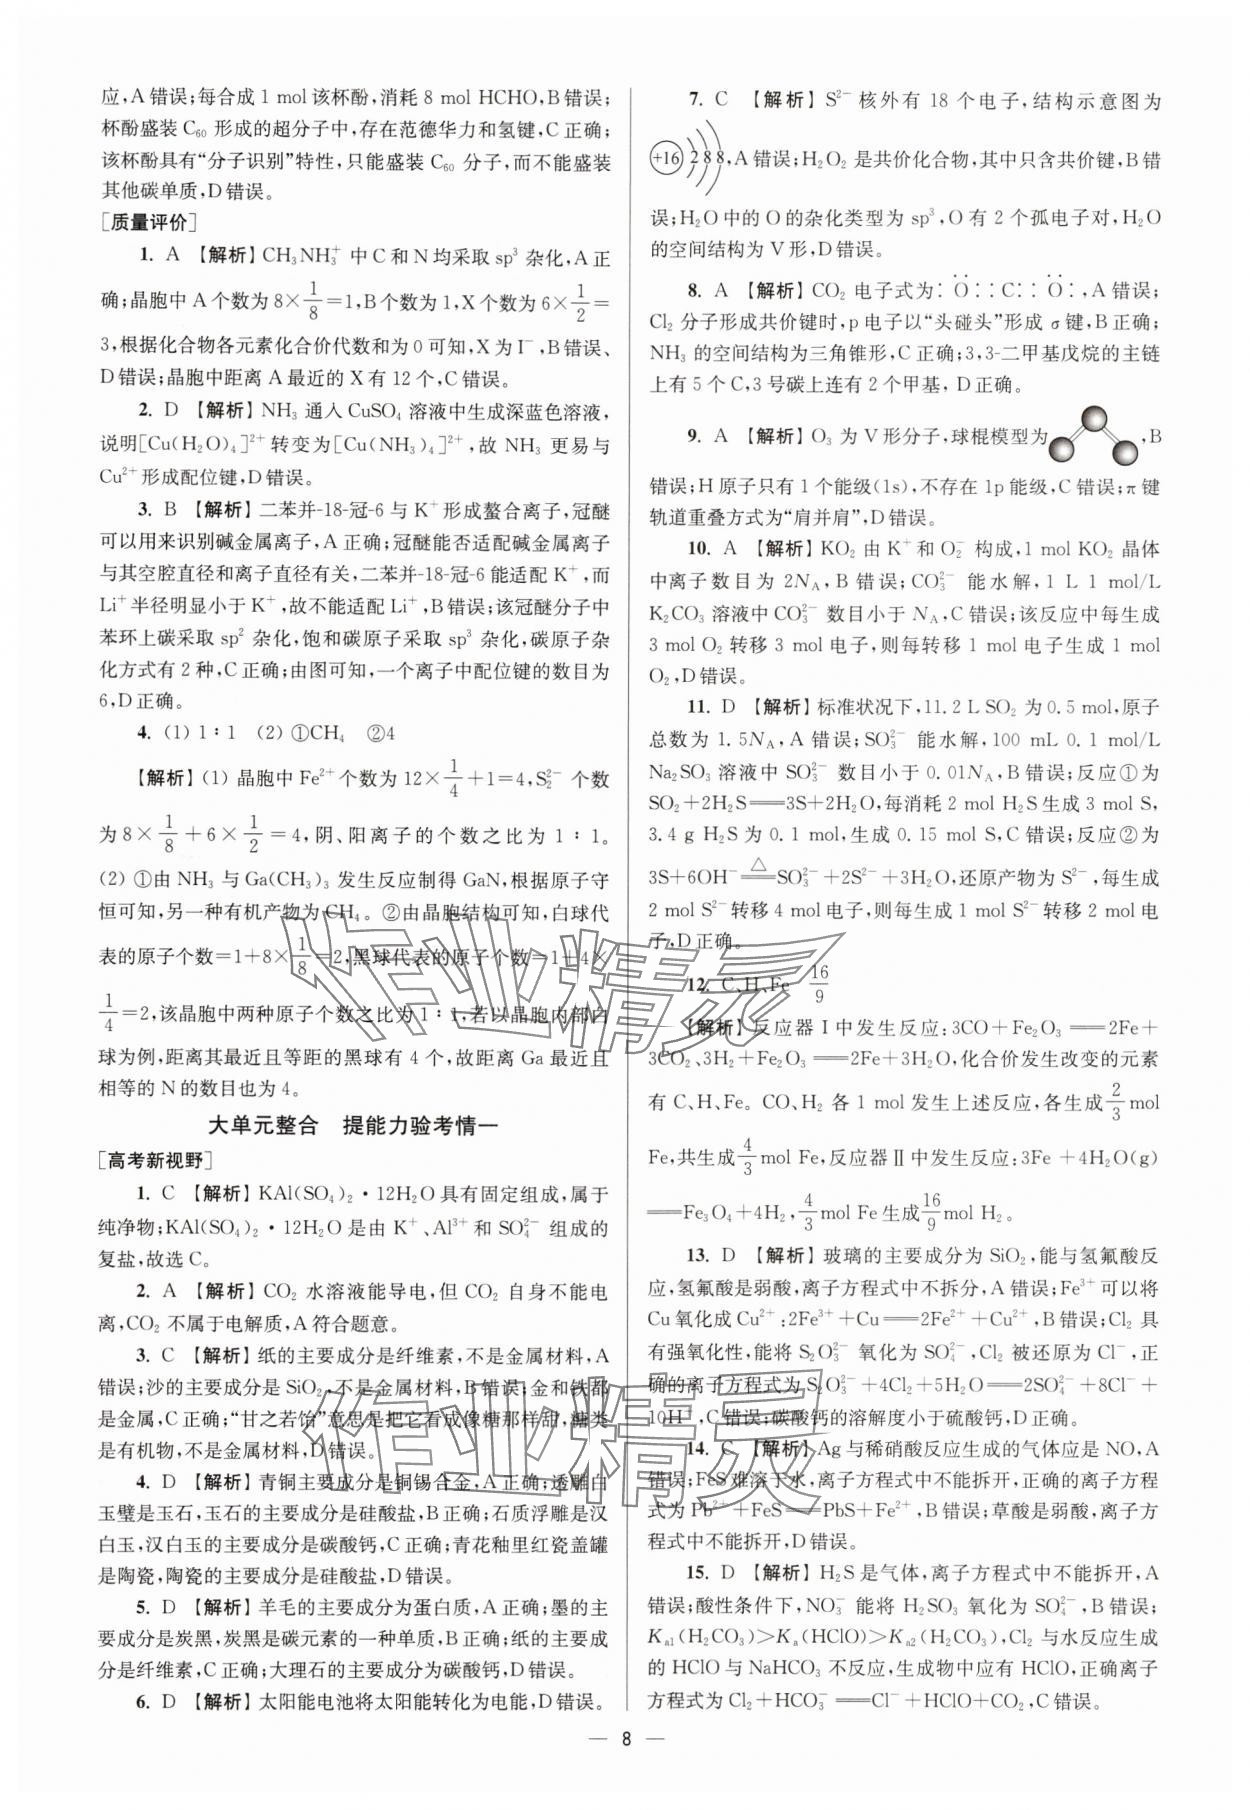 应,A错误;每合成1 mol该杯酚,消耗8 mol HCHO,B错误;
杯酚盛装C₆₀形成的超分子中,存在范德华力和氢键,C正确;
该杯酚具有“分子识别”特性,只能盛装C₆₀分子,而不能盛装
其他碳单质,D错误。
[质量评价]
1. A 【解析】CH₃NH₃⁺中C和N均采取sp³杂化,A正
确;晶胞中A个数为8×1/8=1,B个数为1,X个数为6×1/2=
3,根据化合物各元素化合价代数和为0可知,X为I⁻,B错误、
D错误;晶胞中距离A最近的X有12个,C错误。
2. D 【解析】NH₃通入CuSO₄溶液中生成深蓝色溶液,
说明[Cu(H₂O)₄]²⁺转变为[Cu(NH₃)₄]²⁺,故NH₃更易与
Cu²⁺形成配位键,D错误。
3. B 【解析】二苯并-18-冠-6与K⁺形成螯合离子,冠醚
可以用来识别碱金属离子,A正确;冠醚能否适配碱金属离子
与其空腔直径和离子直径有关,二苯并-18-冠-6能适配K⁺,而
Li⁺半径明显小于K⁺,故不能适配Li⁺,B错误;该冠醚分子中
苯环上碳采取sp²杂化,饱和碳原子采取sp³杂化,碳原子杂
化方式有2种,C正确;由图可知,一个离子中配位键的数目为
6,D正确。
4. (1) 1∶1 (2) ①CH₄ ②4
【解析】(1) 晶胞中Fe²⁺个数为12×1/4+1=4,S₂²⁻个数
为8×1/8+6×1/2=4,阴、阳离子的个数之比为1∶1。
(2) ①由NH₃与Ga(CH₃)₃发生反应制得GaN,根据原子守
恒可知,另一种有机产物为CH₄。②由晶胞结构可知,白球代
表的原子个数=1+8×1/8=2,黑球代表的原子个数=1+4×
1/4=2,该晶胞中两种原子个数之比为1∶1,若以晶胞内部白
球为例,距离其最近且等距的黑球有4个,故距离Ga最近且
相等的N的数目也为4。
大单元整合 提能力验考情一
[高考新视野]
1. C 【解析】KAl(SO₄)₂·12H₂O具有固定组成,属于
纯净物;KAl(SO₄)₂·12H₂O是由K⁺、Al³⁺和SO₄²⁻组成的
复盐,故选C。
2. A 【解析】CO₂水溶液能导电,但CO₂自身不能电
离,CO₂不属于电解质,A符合题意。
3. C 【解析】纸的主要成分是纤维素,不是金属材料,A
错误;沙的主要成分是SiO₂,不是金属材料,B错误;金和铁都
是金属,C正确;“甘之若饴”意思是把它看成像糖那样甜,糖类
是有机物,不是金属材料,D错误。
4. D 【解析】青铜主要成分是铜锡合金,A正确;透雕白
玉璧是玉石,玉石的主要成分是硅酸盐,B正确;石质浮雕是汉
白玉,汉白玉的主要成分是碳酸钙,C正确;青花釉里红瓷盖罐
是陶瓷,陶瓷的主要成分是硅酸盐,D错误。
5. D 【解析】羊毛的主要成分为蛋白质,A正确;墨的主
要成分是炭黑,炭黑是碳元素的一种单质,B正确;纸的主要成
分是纤维素,C正确;大理石的主要成分为碳酸钙,D错误。
6. D 【解析】太阳能电池将太阳能转化为电能,D错误。
7. C 【解析】S²⁻核外有18个电子,结构示意图为
+16 2 8 8,A错误;H₂O₂是共价化合物,其中只含共价键,B错
误;H₂O中的O的杂化类型为sp³,O有2个孤电子对,H₂O
的空间结构为V形,D错误。
8. A 【解析】CO₂电子式为:Ö::C::Ö:,A错误;
Cl₂分子形成共价键时,p电子以“头碰头”形成σ键,B正确;
NH₃的空间结构为三角锥形,C正确;3,3-二甲基戊烷的主链
上有5个C,3号碳上连有2个甲基,D正确。
9. A 【解析】O₃为V形分子,球棍模型为,B
错误;H原子只有1个能级(1s),不存在1p能级,C错误;π键
轨道重叠方式为“肩并肩”,D错误。
10. A 【解析】KO₂由K⁺和O₂⁻构成,1 mol KO₂晶体
中离子数目为2Nₐ,B错误;CO₃²⁻能水解,1 L 1 mol/L
K₂CO₃溶液中CO₃²⁻数目小于Nₐ,C错误;该反应中每生成
3 mol O₂转移3 mol电子,则每转移1 mol电子生成1 mol
O₂,D错误。
11. D 【解析】标准状况下,11.2 L SO₂为0.5 mol,原子
总数为1.5Nₐ,A错误;SO₃²⁻能水解,100 mL 0.1 mol/L
Na₂SO₃溶液中SO₃²⁻数目小于0.01Nₐ,B错误;反应①为
SO₂+2H₂S══3S+2H₂O,每消耗2 mol H₂S生成3 mol S,
3.4 g H₂S为0.1 mol,生成0.15 mol S,C错误;反应②为
3S+6OH⁻══△SO₃²⁻+2S²⁻+3H₂O,还原产物为S²⁻,每生成
2 mol S²⁻转移4 mol电子,则每生成1 mol S²⁻转移2 mol电
子,D正确。
12. C、H、Fe 16/9
【解析】反应器Ⅰ中发生反应:3CO+Fe₂O₃══2Fe+
3CO₂、3H₂+Fe₂O₃══2Fe+3H₂O,化合价发生改变的元素
有C、H、Fe。CO、H₂各1 mol发生上述反应,各生成2/3 mol
Fe,共生成4/3 mol Fe,反应器Ⅱ中发生反应:3Fe+4H₂O(g)
══Fe₃O₄+4H₂,4/3 mol Fe生成16/9 mol H₂。
13. D 【解析】玻璃的主要成分为SiO₂,能与氢氟酸反
应,氢氟酸是弱酸,离子方程式中不拆分,A错误;Fe³⁺可以将
Cu氧化成Cu²⁺:2Fe³⁺+Cu══2Fe²⁺+Cu²⁺,B错误;Cl₂具
有强氧化性,能将S₂O₃²⁻氧化为SO₄²⁻,Cl₂被还原为Cl⁻,正
确的离子方程式为S₂O₃²⁻+4Cl₂+5H₂O══2SO₄²⁻+8Cl⁻+
10H⁺,C错误;碳酸钙的溶解度小于硫酸钙,D正确。
14. C 【解析】Ag与稀硝酸反应生成的气体应是NO,A
错误;FeS难溶于水,离子方程式中不能拆开,正确的离子方程
式为Pb²⁺+FeS══PbS+Fe²⁺,B错误;草酸是弱酸,离子方
程式中不能拆开,D错误。
15. D 【解析】H₂S是气体,离子方程式中不能拆开,A
错误;酸性条件下,NO₃⁻能将H₂SO₃氧化为SO₄²⁻,B错误;
Kₐ₁(H₂CO₃)>Kₐ(HClO)>Kₐ₂(H₂CO₃),Cl₂与水反应生成
的HClO与NaHCO₃不反应,生成物中应有HClO,正确离子
方程式为Cl₂+HCO₃⁻══Cl⁻+HClO+CO₂,C错误。
— 8 —
作业精灵
作业精灵